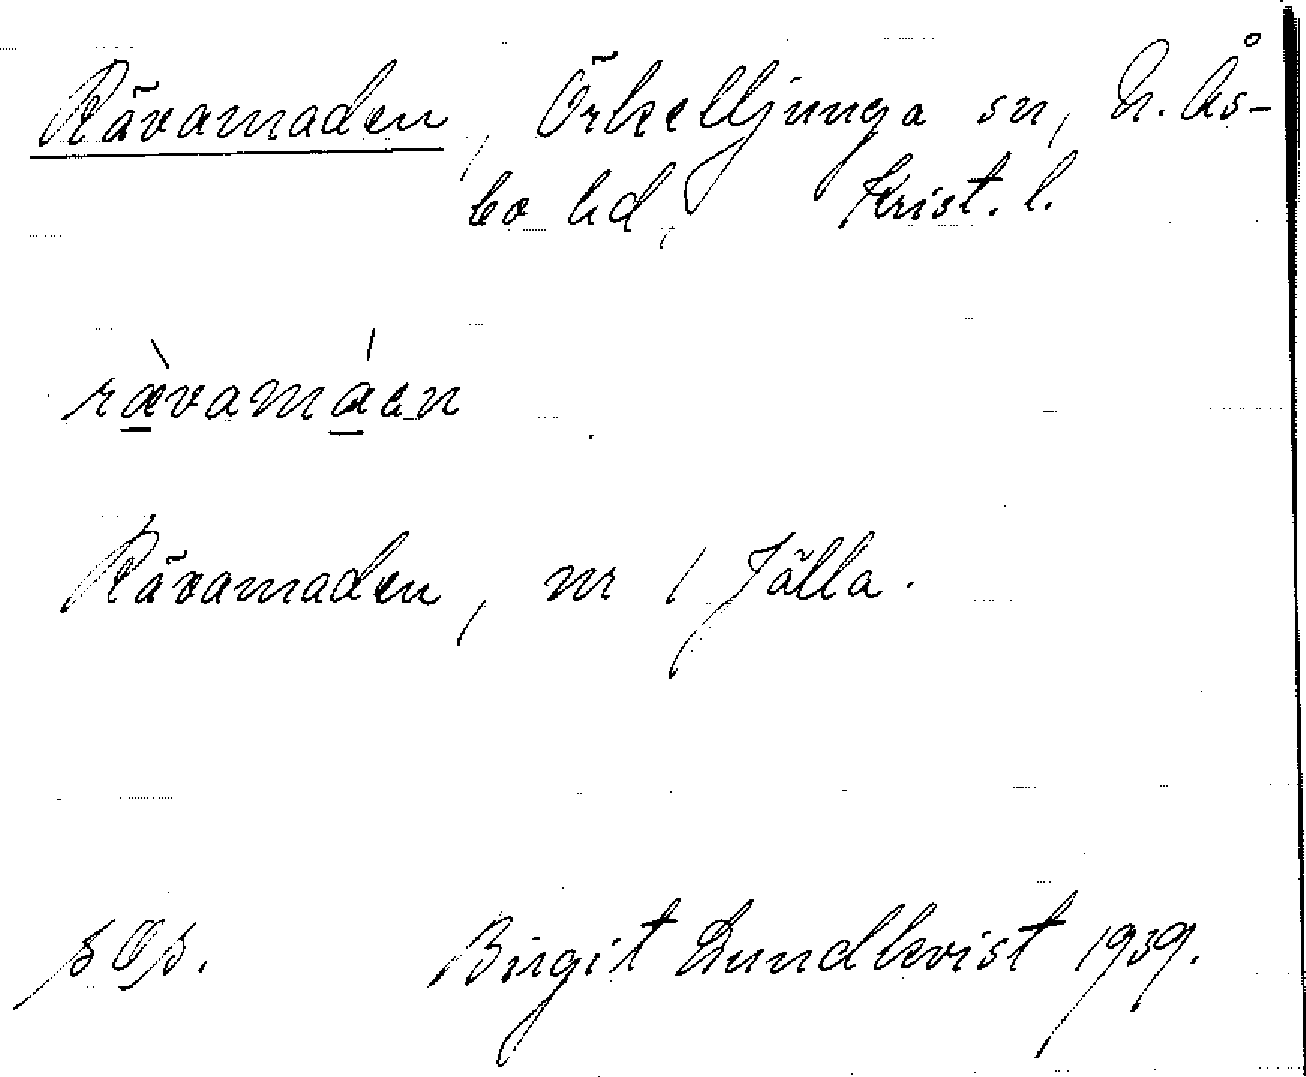 Rävamaden, Örkelljunga sn, N. Ås-
bo hd, Krist. l.
rævamaen
Rävamaden, nr 1 Jälla.
Birgit Lundkvist 1939.